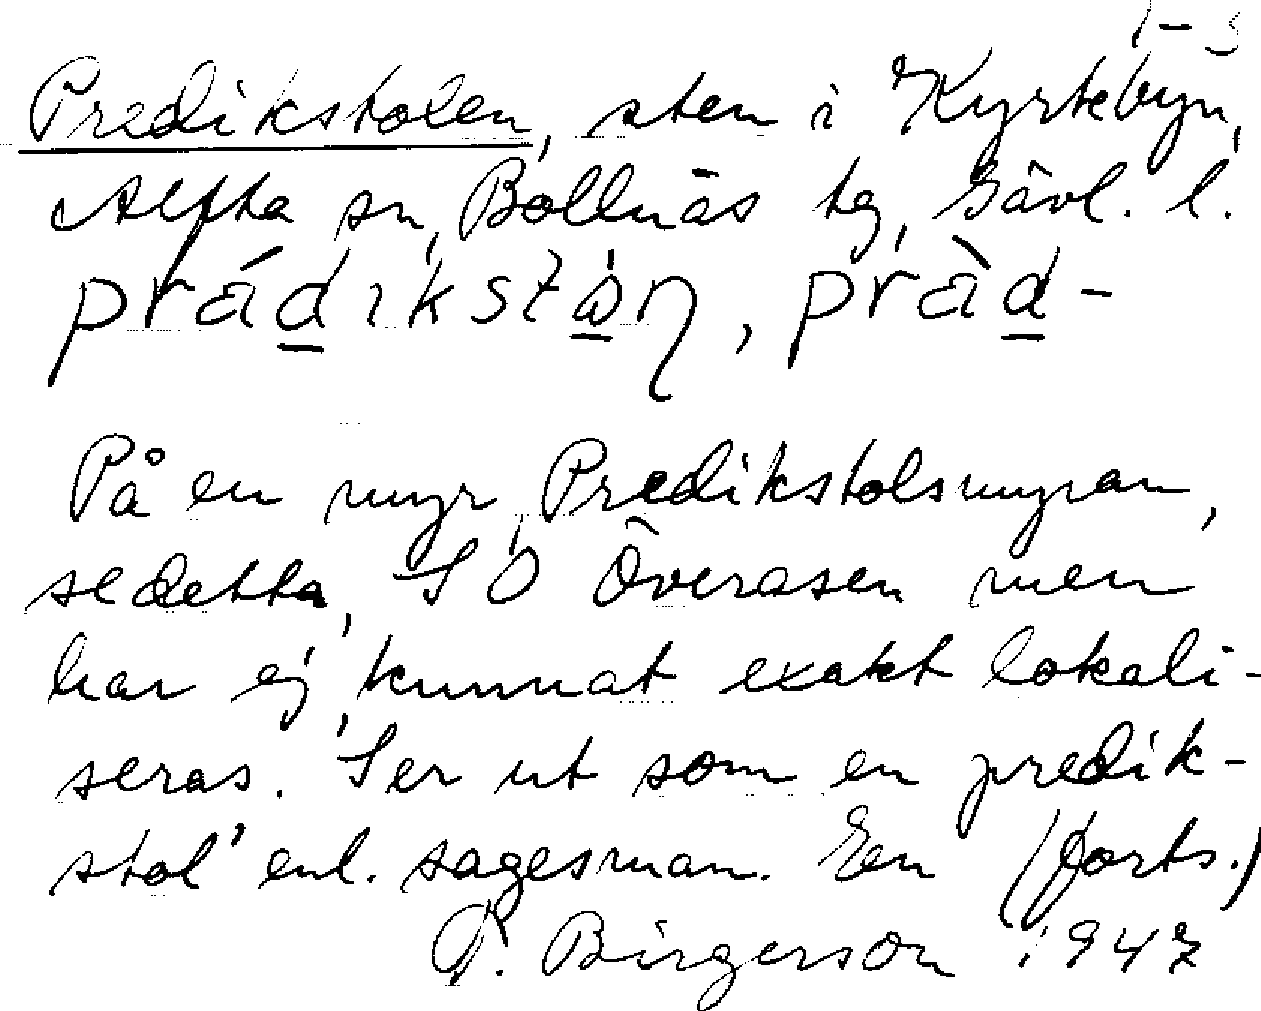 1-3
Predikstolen, sten i Kyrkbyn,
Alfta sn, Bollnäs tg, Gävl. l.
prádikstòn, pràd-
På en myr, Predikstolsmyran,
se detta, SO Överåsen men
har ej kunnat exakt lokali-
seras. 'Ser ut som en predik-
stol' enl. sagesman. En (forts.)
P. Birgerson 1947